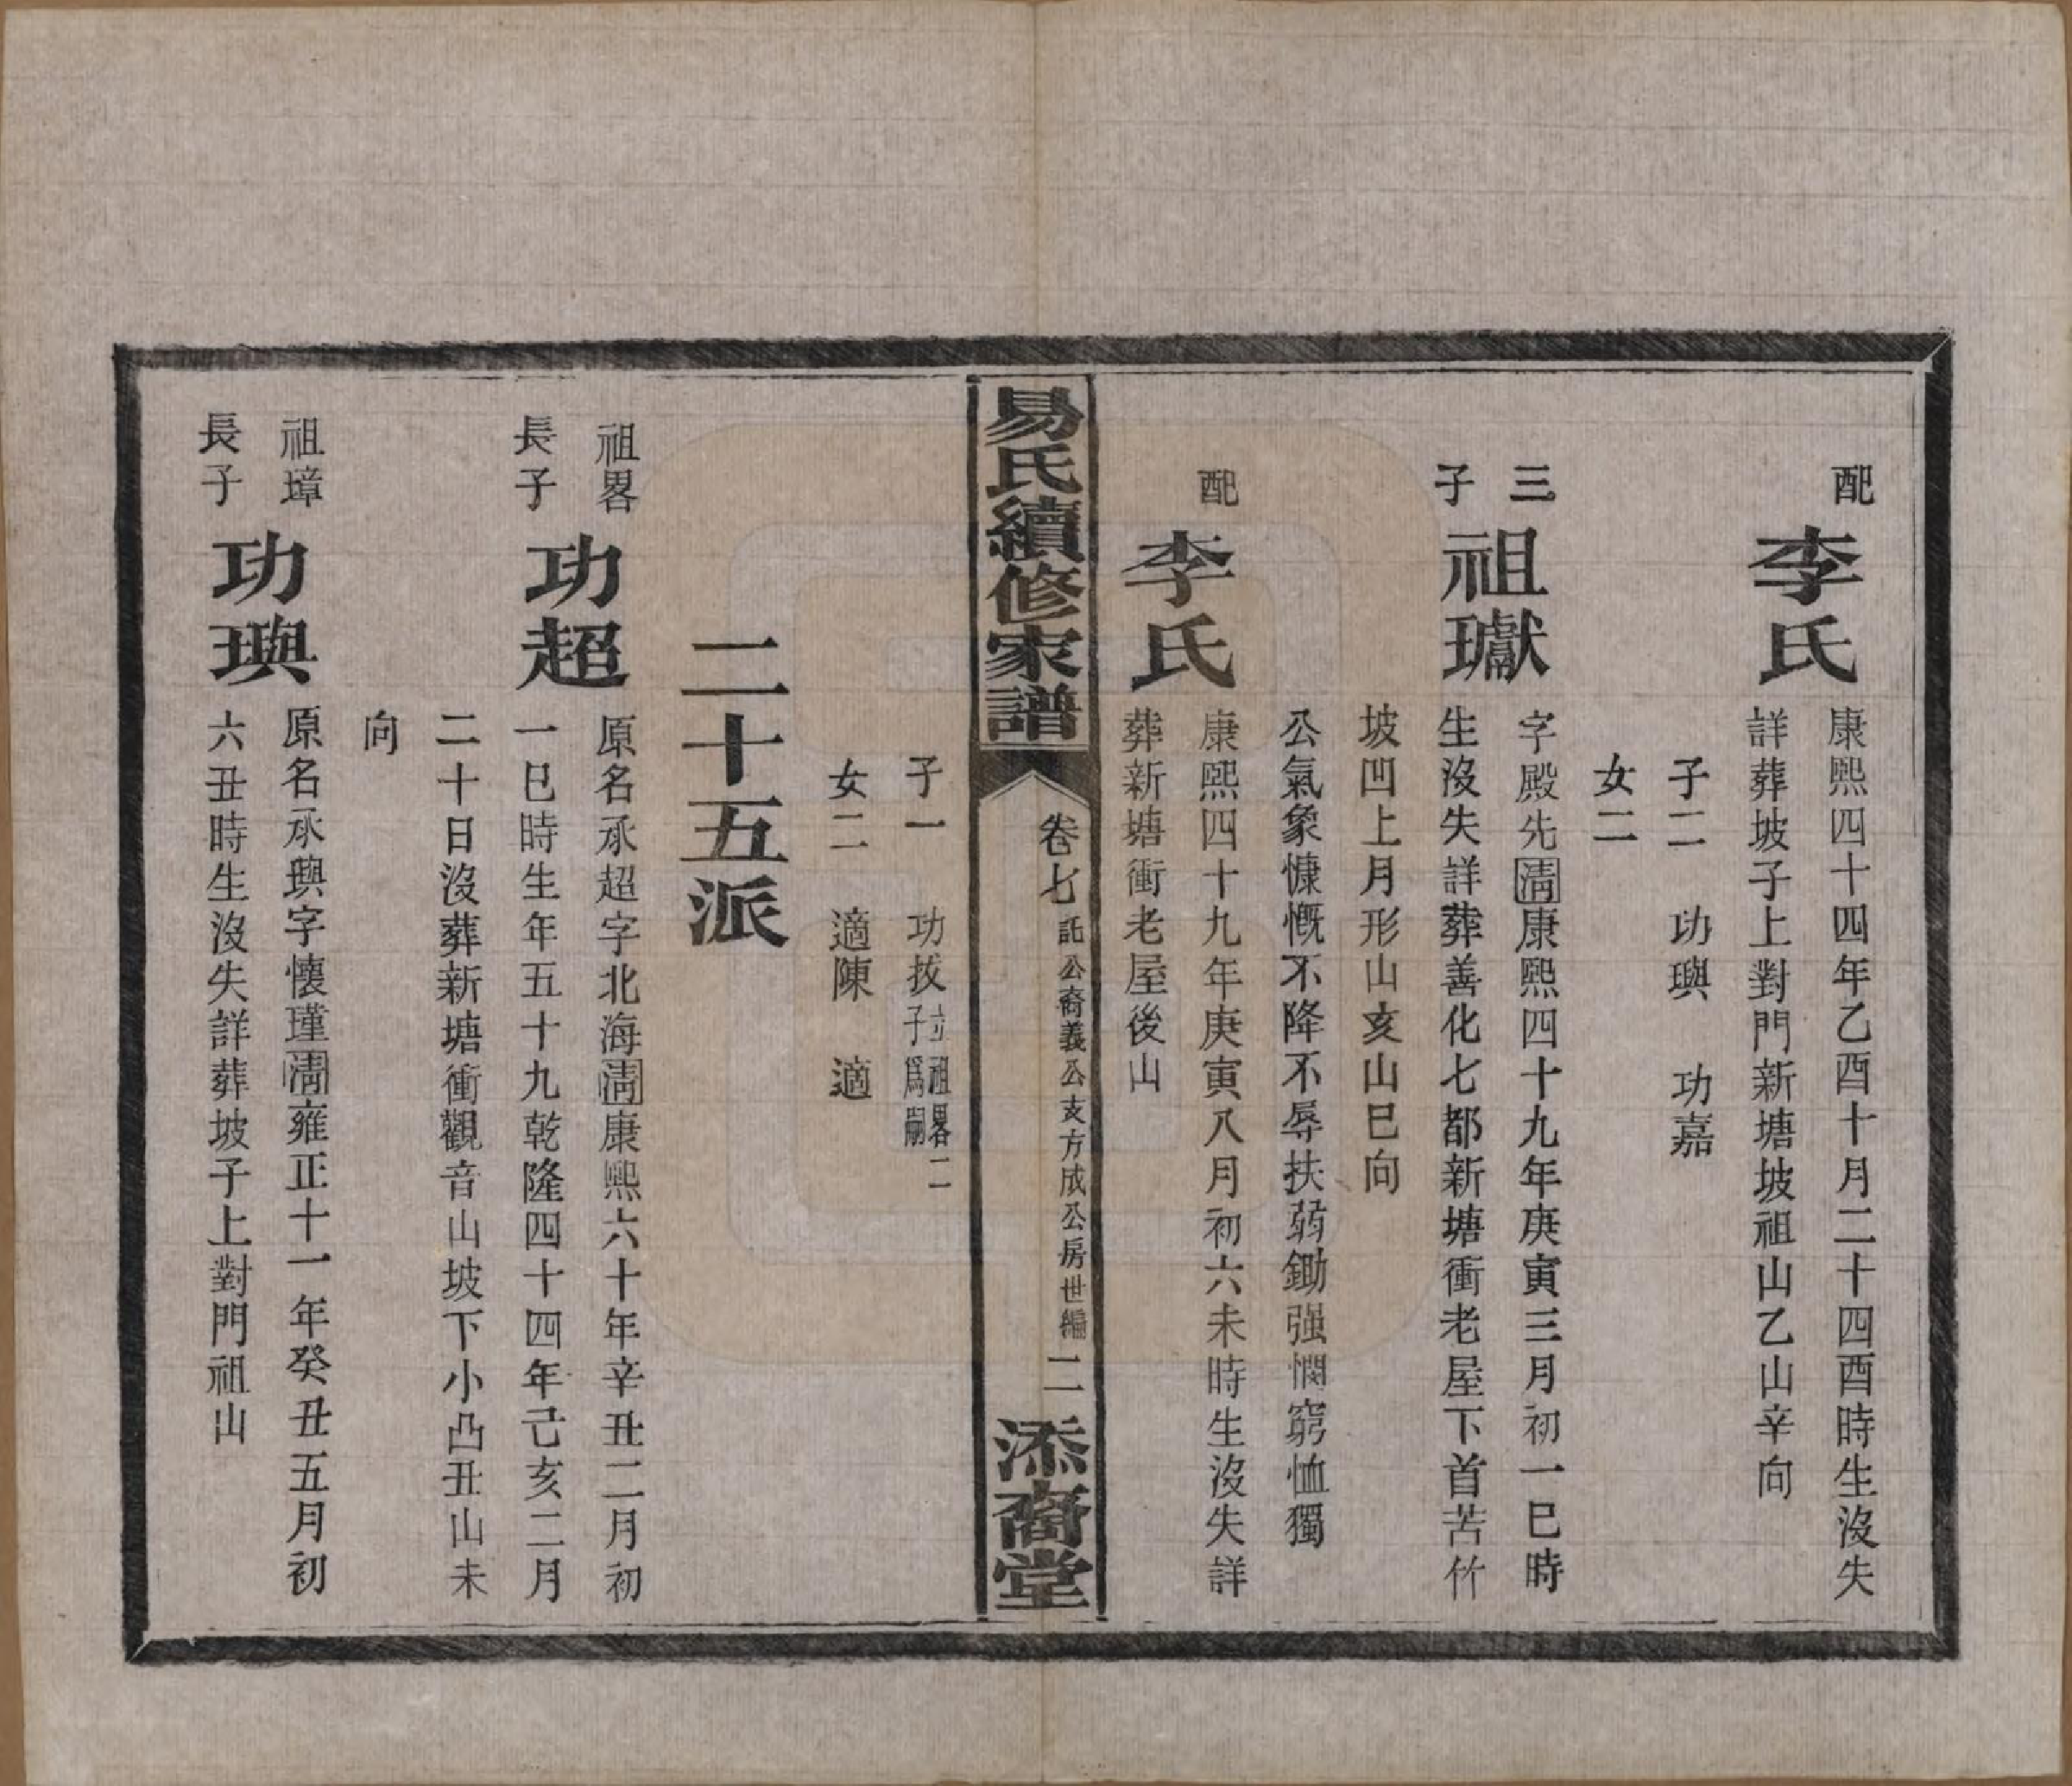 配
李氏
康熙四十四年乙酉十月二十四酉時生沒失
詳葬坡子上對門新塘坡祖山乙山辛向
子二 功璵 功嘉
女二
三子
祖瓛
字殿先清康熙四十九年庚寅三月初一巳時
生沒失詳葬善化七都新塘衝老屋下首苦竹
坡凹上月形山亥山巳向
公氣象慷慨不降不辱扶弱鋤强憫窮恤獨
配
李氏
康熙四十九年庚寅八月初六未時生沒失詳
葬新塘衝老屋後山
易氏續修家譜
卷七
託公裔義公支方成公房世編
二
添裔堂
子一 功拔 立祖畧二
子爲嗣
女二 適陳 適
二十五派
祖畧
長子
功超
原名承超字北海清康熙六十年辛丑二月初
一巳時生年五十九乾隆四十四年己亥二月
二十日沒葬新塘衝觀音山坡下小凸丑山未
向
祖璋
長子
功璵
原名承璵字懷瑾清雍正十一年癸丑五月初
六丑時生沒失詳葬坡子上對門祖山